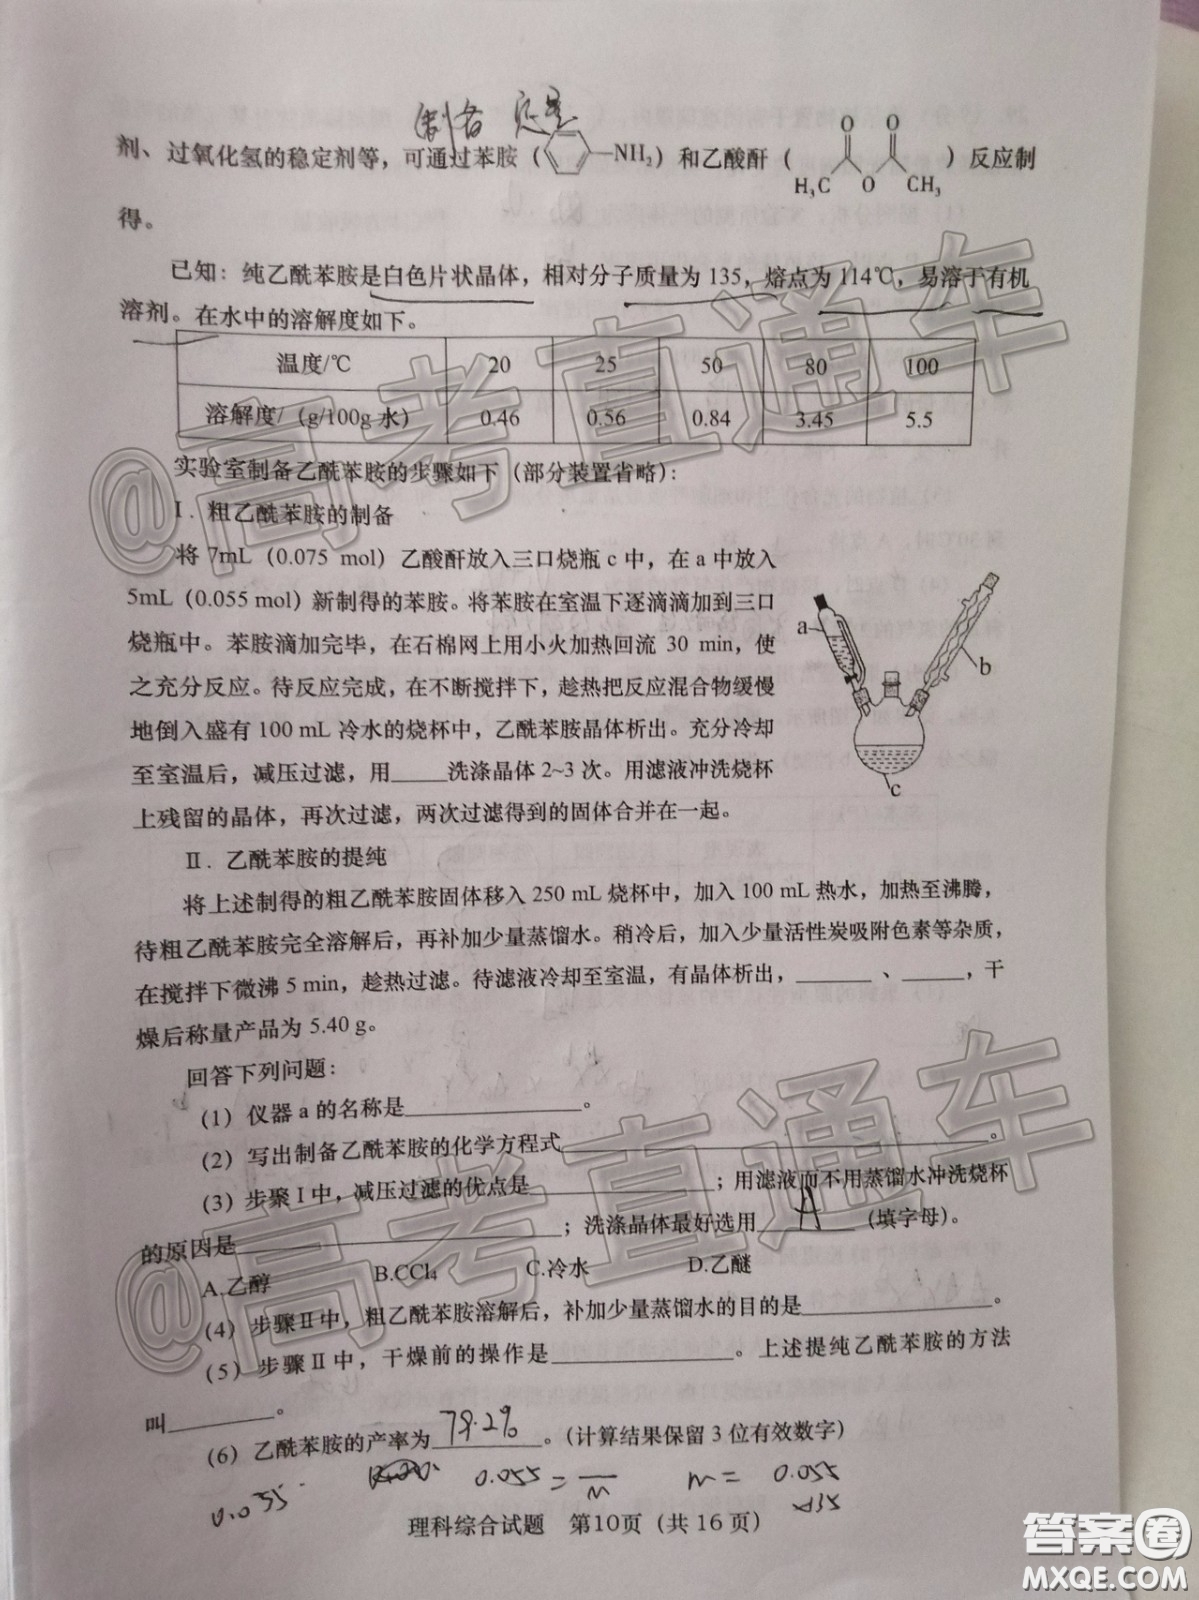 制备
剂、过氧化氢的稳定剂等，可通过苯胺（ —NH₂）和乙酸酐（ O O H₃C O CH₃ ）反应制
得。
已知：纯乙酰苯胺是白色片状晶体，相对分子质量为 135，熔点为 114℃，易溶于有机
溶剂。在水中的溶解度如下。
温度/℃ 20 25 50 80 100
溶解度/（g/100g 水） 0.46 0.56 0.84 3.45 5.5
实验室制备乙酰苯胺的步骤如下（部分装置省略）：
Ⅰ．粗乙酰苯胺的制备
将 7mL（0.075 mol）乙酸酐放入三口烧瓶 c 中，在 a 中放入
5mL（0.055 mol）新制得的苯胺。将苯胺在室温下逐滴滴加到三口
烧瓶中。苯胺滴加完毕，在石棉网上用小火加热回流 30 min，使
之充分反应。待反应完成，在不断搅拌下，趁热把反应混合物缓慢
地倒入盛有 100 mL 冷水的烧杯中，乙酰苯胺晶体析出。充分冷却
至室温后，减压过滤，用____洗涤晶体 2~3 次。用滤液冲洗烧杯
上残留的晶体，再次过滤，两次过滤得到的固体合并在一起。
a
b
c
Ⅱ．乙酰苯胺的提纯
将上述制得的粗乙酰苯胺固体移入 250 mL 烧杯中，加入 100 mL 热水，加热至沸腾，
待粗乙酰苯胺完全溶解后，再补加少量蒸馏水。稍冷后，加入少量活性炭吸附色素等杂质，
在搅拌下微沸 5 min，趁热过滤。待滤液冷却至室温，有晶体析出，______、_____，干
燥后称量产品为 5.40 g。
回答下列问题：
（1）仪器 a 的名称是______________。
（2）写出制备乙酰苯胺的化学方程式__________________________________。
（3）步聚Ⅰ中，减压过滤的优点是_______________；用滤液而不用蒸馏水冲洗烧杯
的原因是__________________________；洗涤晶体最好选用___A___（填字母）。
A.乙醇 B.CCl₄ C.冷水 D.乙醚
（4）步骤Ⅱ中，粗乙酰苯胺溶解后，补加少量蒸馏水的目的是_______________。
（5）步骤Ⅱ中，干燥前的操作是______________。上述提纯乙酰苯胺的方法
叫________。
（6）乙酰苯胺的产率为_78.2%_。（计算结果保留 3 位有效数字）
0.055 = — M
m = 0.055
×135
0.055
理科综合试题 第10页（共 16 页）
@高考直通车
@高考直通车
答案圈
MXQE.COM